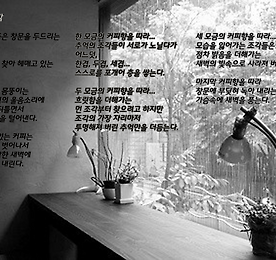 은 창문을 두드리는
찾아 헤매고 있는
몸뚱이는
의 울음소리에
뒤틀면서
을 털어낸다.
없는 커피는
벗어나서
한 새벽에
내린다.
한 모금의 커피향을 따라...
추억의 조각들이 서로가 노닐다가
어느덧,
한겹, 두겹, 세겹...
스스로를 포개어 층을 쌓는다.
두 모금의 커피향을 따라...
흐릿함을 더해가는
먼 조각부터 찾으려고 하지만
조각의 가장 자리마저
투명해져 버린 추억만을 더듬는다.
세 모금의 커피향을 따라...
모습을 잃어가는 조각들은
점차 밝음을 더해가는
새벽의 빛속으로 사라져 버
마지막 커피향을 따라
창문에 부딪혀 녹아 내리는
가슴속에 새벽을 품는다.